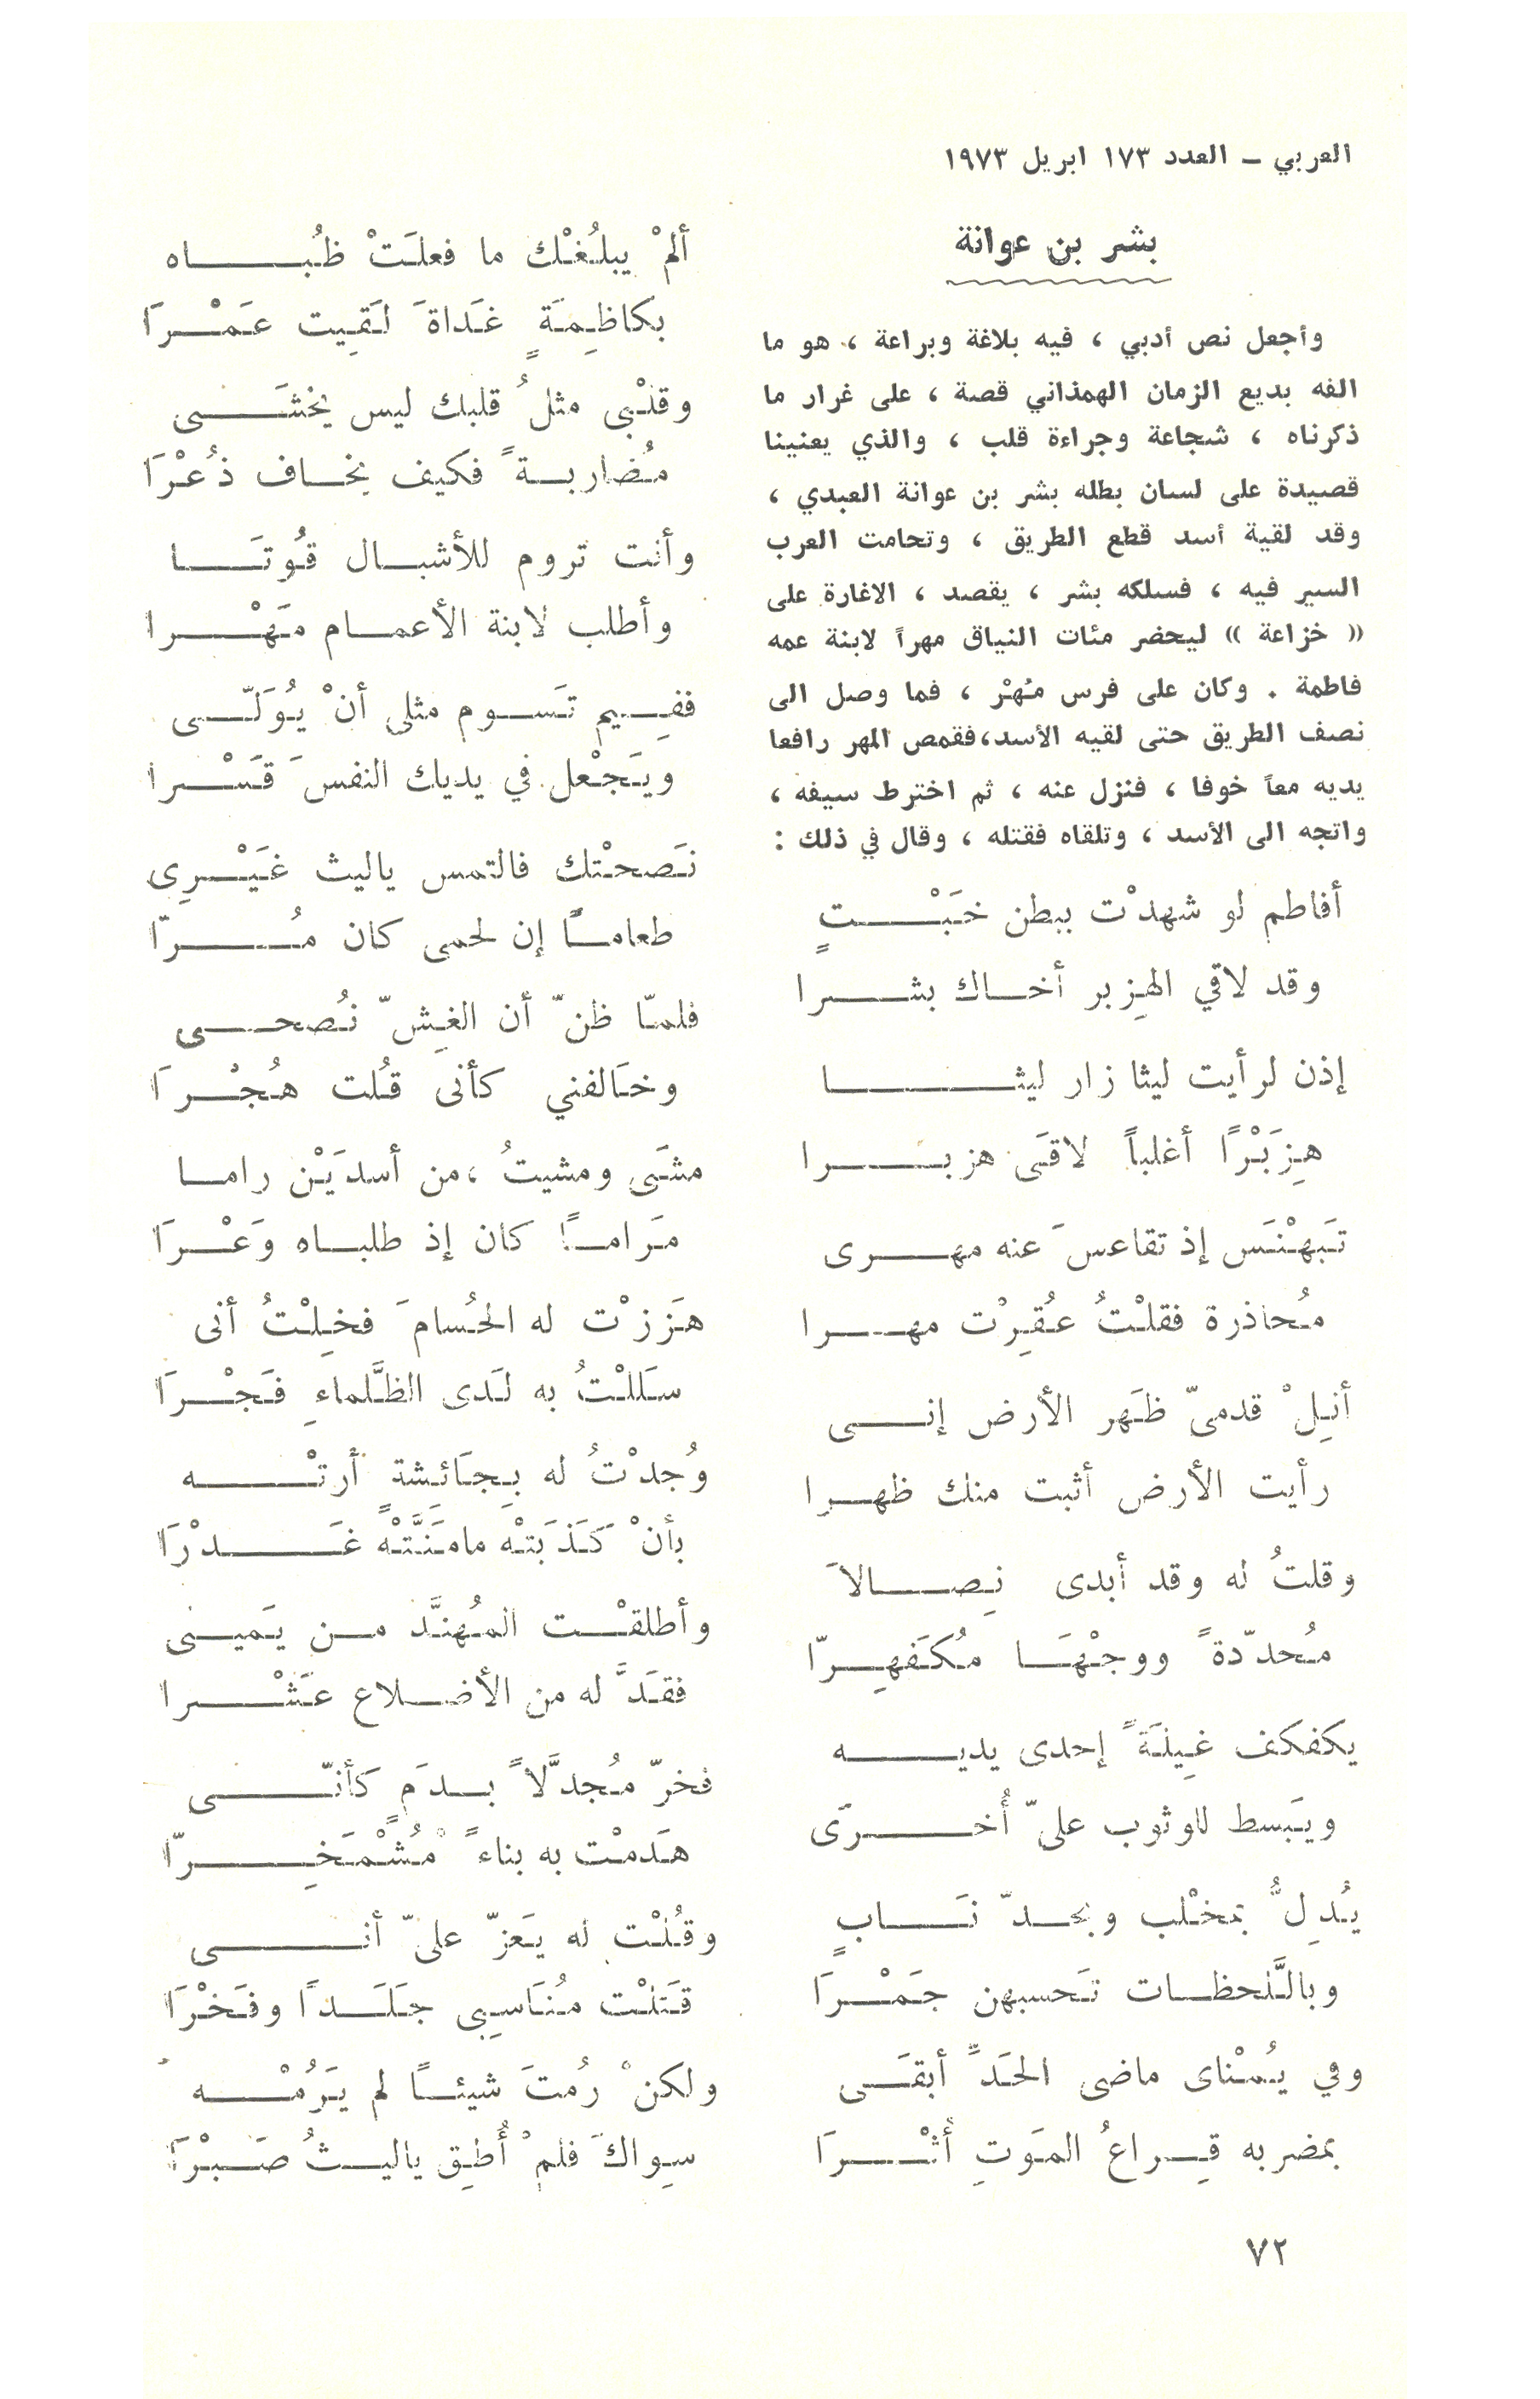 العربي ــ العدد ١٧٣ ابريل ١٩٧٣
بشر بن عوانة
وأجعل نص أدبي ، فيه بلاغة وبراعة ، هو ما
الفه بديع الزمان الهمذاني قصة ، على غرار ما
ذكرناه ، شجاعة وجراءة قلب ، والذي يعنينا
قصيدة على لسان بطله بشر بن عوانة العبدي ،
وقد لقية أسد قطع الطريق ، وتحامت العرب
السير فيه ، فسلكه بشر ، يقصد ، الاغارة على
(( خزاعة )) ليحضر مئات النياق مهراً لابنة عمه
فاطمة . وكان على فرس مُهْر ، فما وصل الى
نصف الطريق حتى لقيه الأسد،فقمص المهر رافعا
يديه معاً خوفا ، فنزل عنه ، ثم اخترط سيفه ،
واتجه الى الأسد ، وتلقاه فقتله ، وقال في ذلك :
أفاطم لو شهدْت ببطن خَبْــتٍ
وقد لاقي الهِزبر أخاك بشــرا
إذن لرأيت ليثا زار ليثــا
هِزَبْرًا أغلباً لاقَى هزبــرا
تَبَهْنَس إذ تقاعسَ عنه مهــرى
مُحاذرة فقلْتُ عُقِرْت مهــرا
أنِلْ قدمىّ ظَهر الأرض إنــى
رأيت الأرض أثبت منك ظهــرا
وقلتُ له وقد أبدى نِصــالاَ
مُحدّدةً ووجْهَا مُكَفهِــرّا
يكفكف غِيلَةً إحدى يديــه
ويَبسط للوثوب علىّ أُخــرَى
يُدِلُّ بمخْلب وبحدّ نَــابٍ
وبالَّلحظات تَحسبهن جَمْــرَا
وفي يُمْناى ماضى الحَدِّ أبقَــى
بمضربه قِراعُ المَوتِ أثْــرَا
ألمْ يبلُغْك ما فعلَتْ ظُبــاه
بكاظِمَةٍ غَداةَ لَقِيت عَمْــرَا
وقلْبى مثلُ قلبك ليس يخشَــى
مُضاربةً فكيف يخاف ذُعْرَا
وأنت تروم للأشبال قُوتَــا
وأطلب لابنة الأعمام مَهْــرا
ففِيم تَسوم مثلى أنْ يُوَلّــى
ويَجْعل في يديك النفسَ قَسْــرا
نَصحْتك فالتمس ياليث غَيْــرِى
طعاماً إن لحمى كان مُــرّا
فلمّا ظنّ أن الغِشّ نُصحــى
وخَالفني كأنى قُلت هُجْــرَا
مشَى ومشيتُ ،من أسدَيْن رامــا
مَراماً كان إذ طلباه وَعْــرَا
هَززْت له الحُسامَ فخِلْتُ أنى
سَللْتُ به لَدى الظَّلماءِ فَجْــرَا
وُجدْتُ له بِجَائشةٍ أرتْــه
بأنْ كَذَبتْه مامَنَّتْه غَــدْرَا
وأطلقْت المُهنَّد من يَمينى
فقَدَّ له من الأضلاع عَشْــرا
فخرّ مُجدَّلاً بدَمٍ كأنّــى
هَدمْت به بناءً مُشْمَخِــرّا
وقُلْت له يَعزّ علىّ أنــى
قَتلْت مُنَاسِبى جَلَداً وفَخْرَا
ولكنْ رُمتَ شيئاً لم يَرُمْــه
سِواكَ فلمْ أُطِق ياليثُ صَبْرَا
٧٢